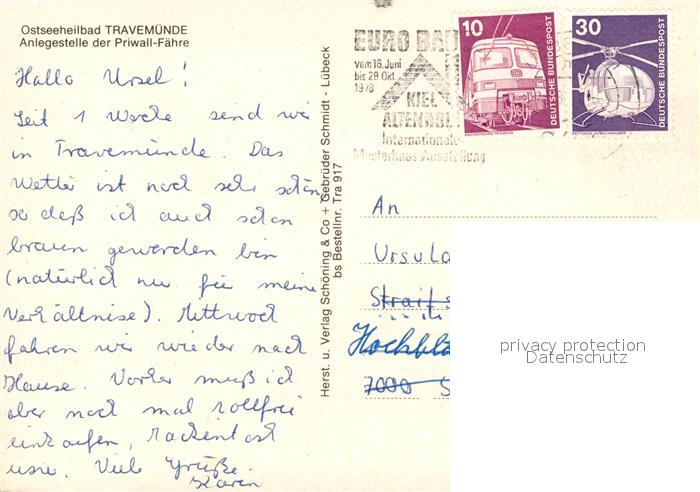 Ostseeheilbad TRAVEMÜNDE
Anlegestelle der Priwall-Fähre
Hallo Ursel!
Seit 1 Woche send wir
in Travemünde. Das
Wetter ist noch sehr schön,
so daß ich auch schon
braun geworden bin
(natürlich nur für meine
Verhältnise). Mittwoch
fahren wir wieder nach
Hause. Vorher muß ich
aber noch mal zollfrei
einkaufen,
usw. Viele Grüße
Karen
Herst. u. Verlag Schöning & Co + Gebrüder Schmidt - Lübeck
bs Bestellnr. Tra 917
EURO BAU
vom 16. Juni
bis 29. Okt.
1978
KIEL
ALTENHOL
Internationale
Musterhaus-Ausstellung
10
DEUTSCHE BUNDESPOST
30
DEUTSCHE BUNDESPOST
An
Ursula
Hochbla
7000 S
privacy protection
Datenschutz